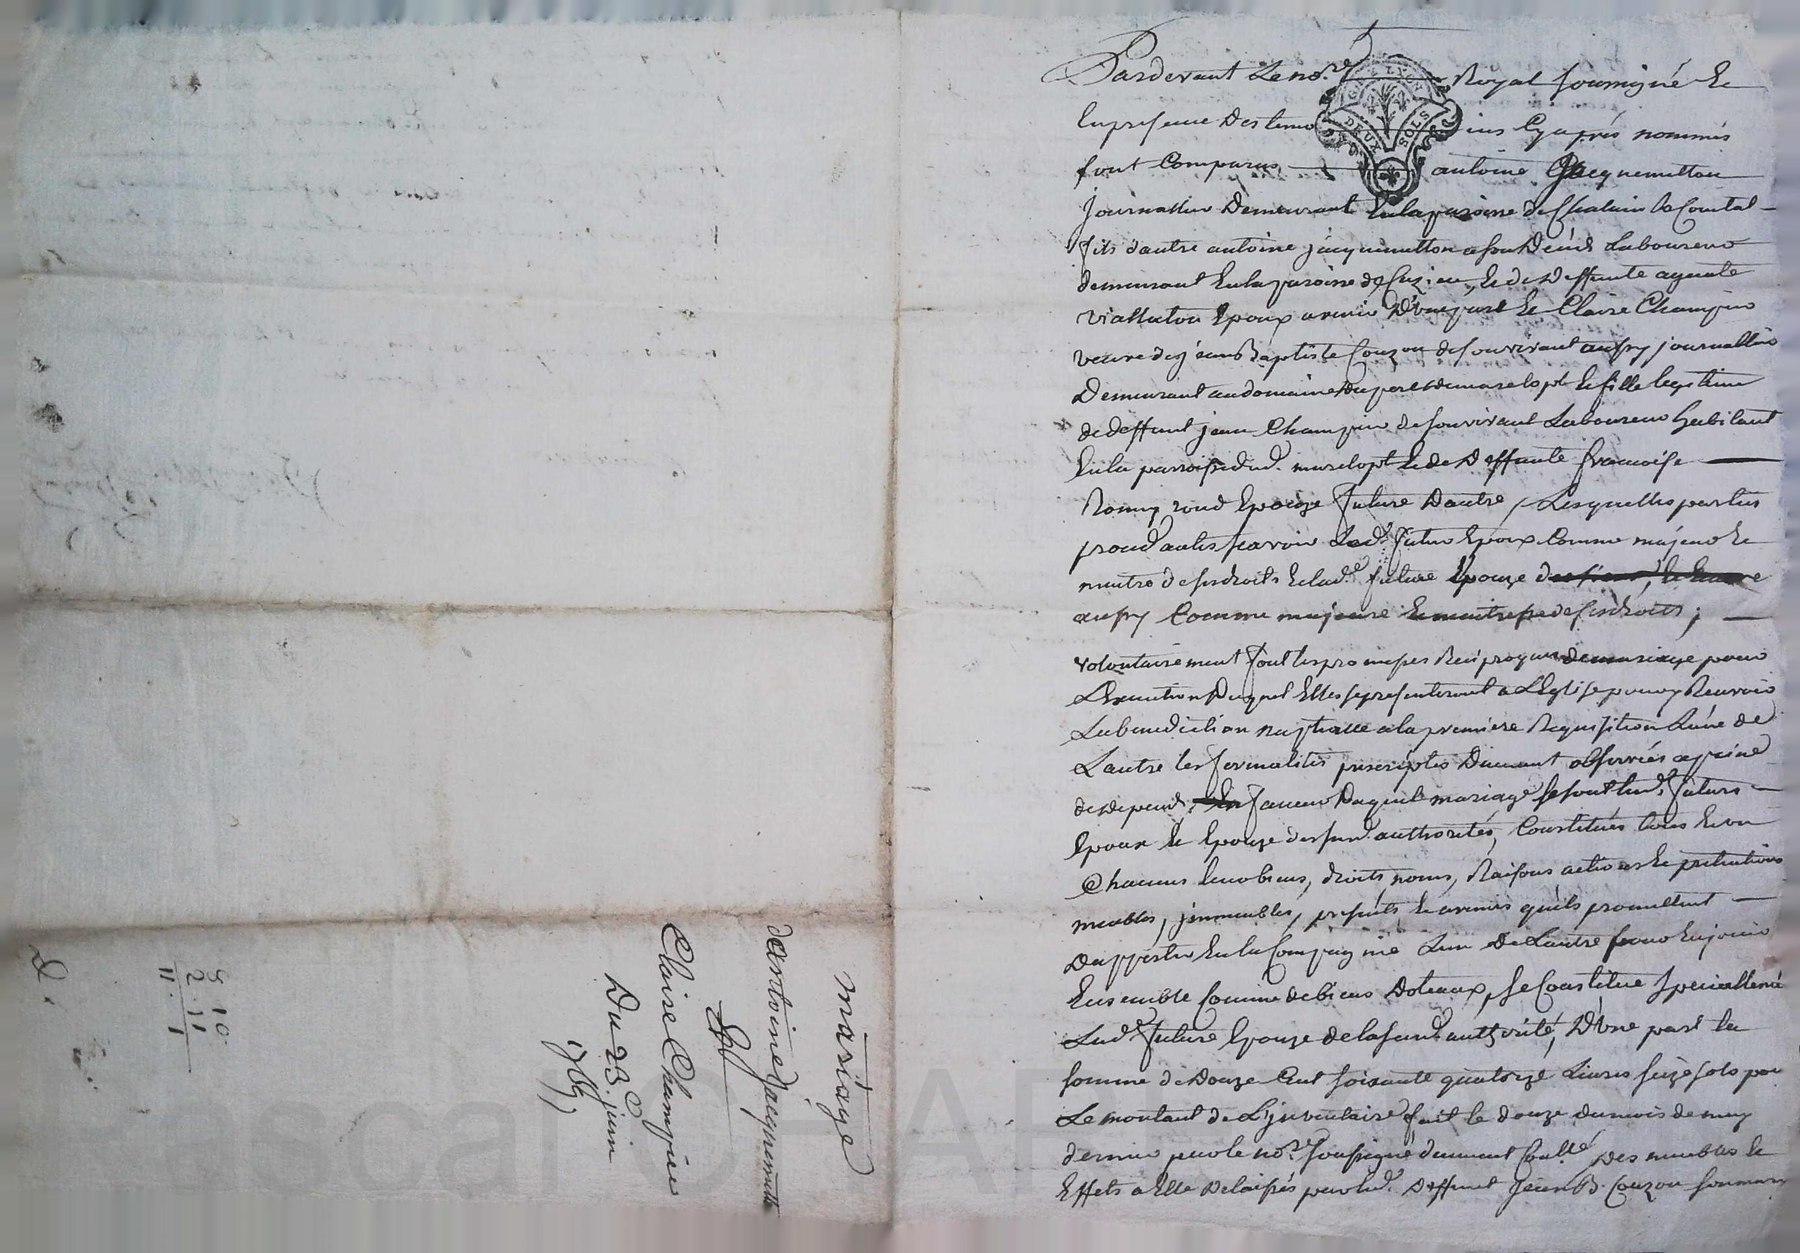 Pardevant Le no.re Royal soussigné Et
En presence Des temoins Cy après nommés
sont Comparus antoine Jacquemetton
Journallier Demeurant En la paroisse de Chalain le Comtal
fils d'autre antoine jacquemetton a son Decéd Laboureur
demeurant En la paroisse de Cuzieu, Et de Deffunte
Epoux avenir D'une part Et Claire Champier
veuve de jean Baptiste Couzon de son vivant aussy journallier
Demeurant au domaine Du port de marclopt Et fille legitime
de deffunt jean Champier de son vivant Laboureur habitant
En la parroisse dud. marclopt Et de Deffunte francoise
Epouze future Dautre, Lesquelles parties
procd.antes scavoir Led. futur Epoux Comme majeur Et
maitre de ses droits Et lad.e future Epouze
aussy Comme majeure Et maitresse de ses droits;
volontairement font les promesses Reciproques de mariage pour
L'Execution Duquel Elles se presenteront a L'Eglise pour y Recevoir
La benediction nuptialle a la premiere Requisition Lune de
Lautre les formalités prescriptes Dument observées a peine
de depend, En faveur Duquel mariage se sont lesd. futurs
Epoux Et Epouze des susd. authorités, Constitués tous Et un
Chacuns leurs biens, droits, noms, Raisons actions Et pretentions
meubles, jmmeubles, presents Et avenirs qu'ils promettent
Dapporter En la Compagnie Lun De Lautre pour En jouir
Ensemble Comme de biens Doteaux, se Constitue specialleme
Lad.e future Epouze de la susd. authorité, D'une part la
somme de Douze Cent soixante quatorze Livres seize sols pou
Le montant de L'jnventaire fait le douze du mois de may
dernier par le no.re soussigné dument Con.llé Des meubles Et
Effets a Elle Delaissés par led. Deffunt Jean B. Couzon son mary
mariage
d'antoine Jacquemetton
Et
Claire Champier
Du 23 juin
1767
9 10
2. 11
11. 1
GEN. LYON
DEUX SOLS